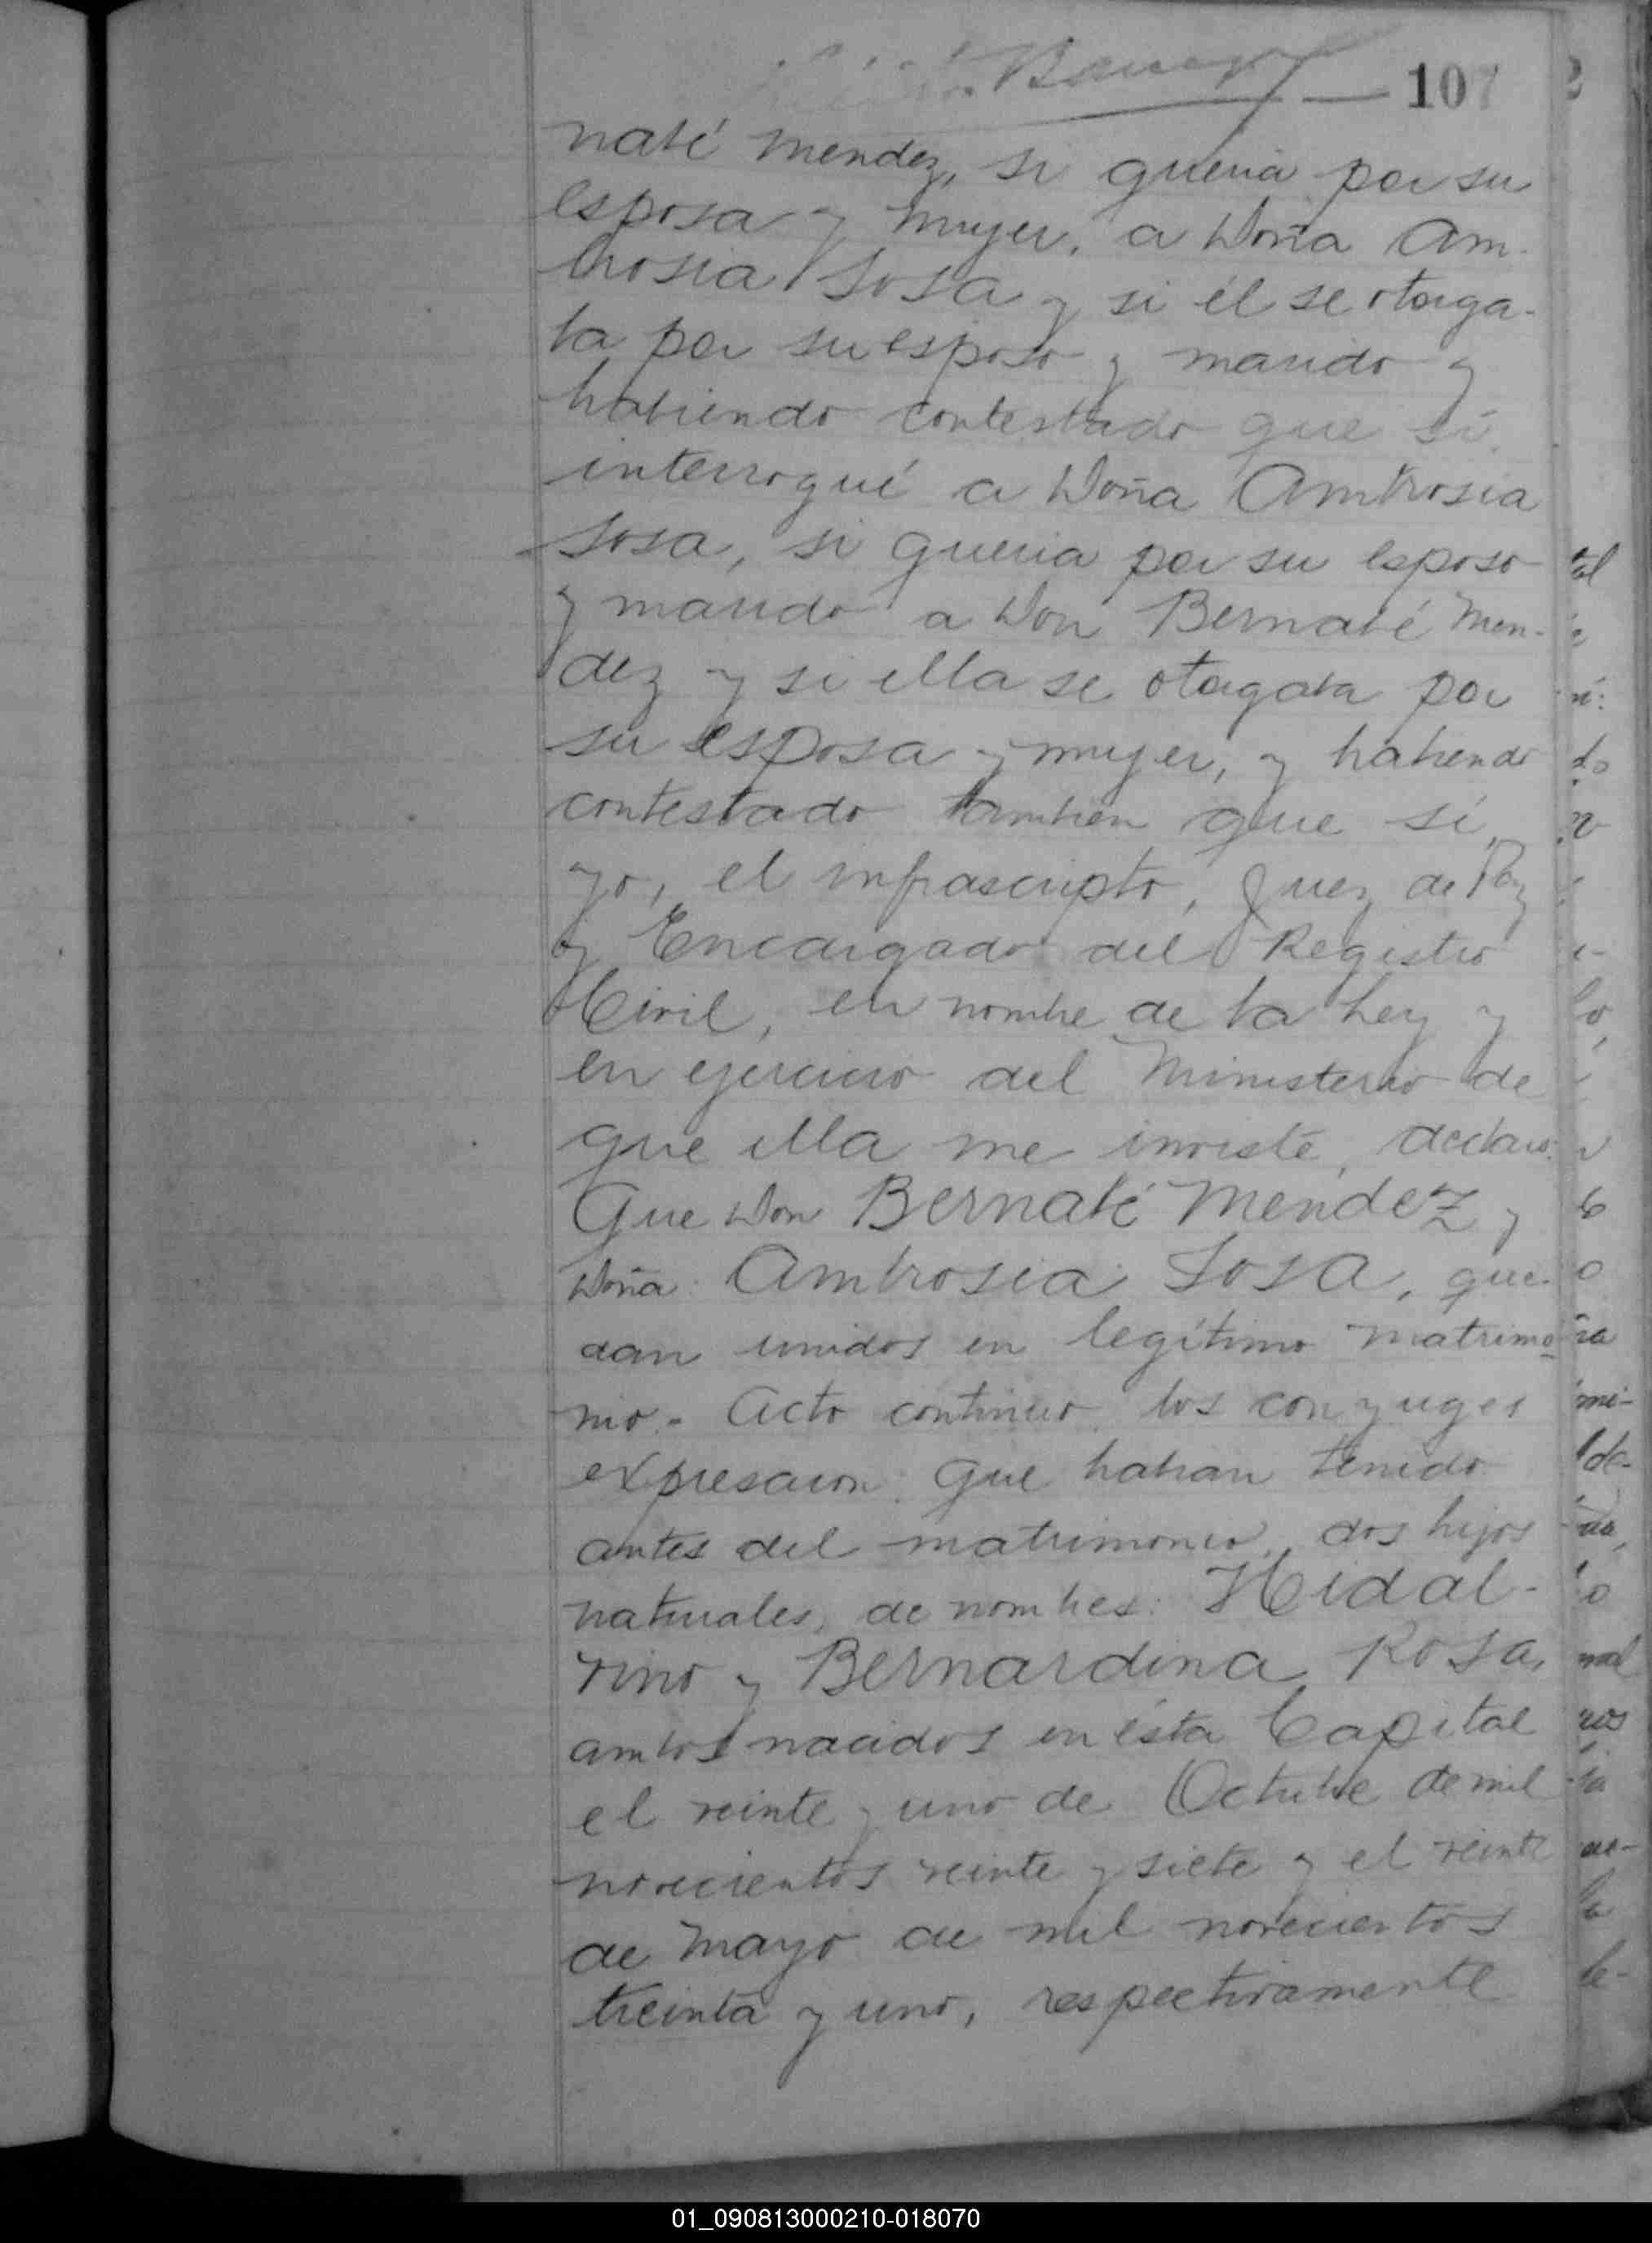 107
nabé Mendez, si queria por su
esposa y mujer, a Doña Am-
brosia Sosa y si él se otorga-
ba por su esposo y marido y
habiendo contestado que sí,
interrogué a Doña Ambrosia
Sosa, si queria por su esposo
y marido a Don Bernabé Men-
dez y si ella se otorgaba por
su esposa y mujer, y habiendo
contestado tambien que sí,
yo, el infrascripto, Juez de Paz
y Encargado del Registro
Civil, en nombre de la Ley y
en ejercicio del Ministerio de
que ella me inviste, declaro:
Que Don Bernabé Mendez y
Doña Ambrosia Sosa, que-
dan unidos en legítimo matrimo
nio.- Acto continuo los conyuges
expresaron: que habian tenido
antes del matrimonio, dos hijos
naturales, de nombres: Hidal-
vino y Bernardina Rosa,
ambos nacidos en ésta Capital
el veinte y uno de Octubre de mil
novecientos veinte y siete y el veinte
de Mayo de mil novecientos
treinta y uno, respectivamente
01_090813000210-018070